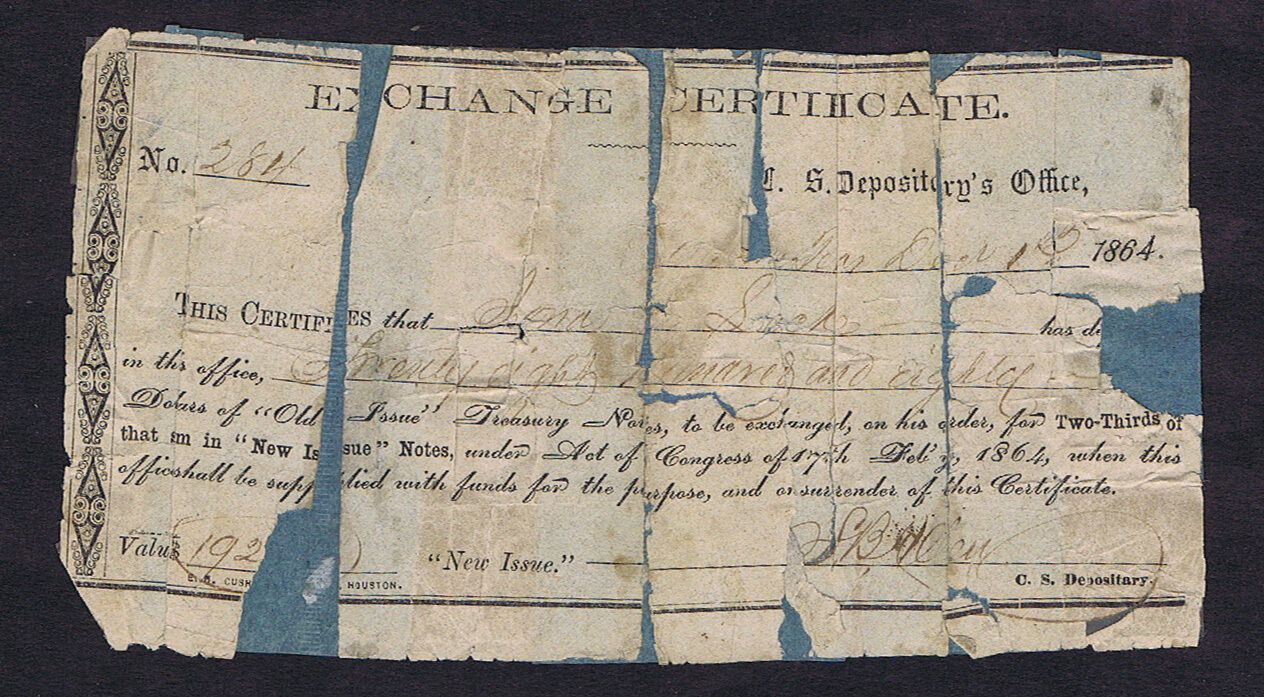 EXCHANGE CERTIIICATE.
No. 284
C. S. Depository's Office,
1st 1864.
THIS CERTIFIES that has de
in ths office, Twenty eight hundred and eighty
Dolars of "Old Issue" Treasury Notes, to be exchanged, on his order, for Two-Thirds of
that sm in "New Issue" Notes, under Act of Congress of 17th Feb'y, 1864, when this
officshall be supplied with funds for the purpose, and on surrender of this Certificate.
Value 192 "New Issue."
E. H. CUSH HOUSTON. C. S. Depositary.